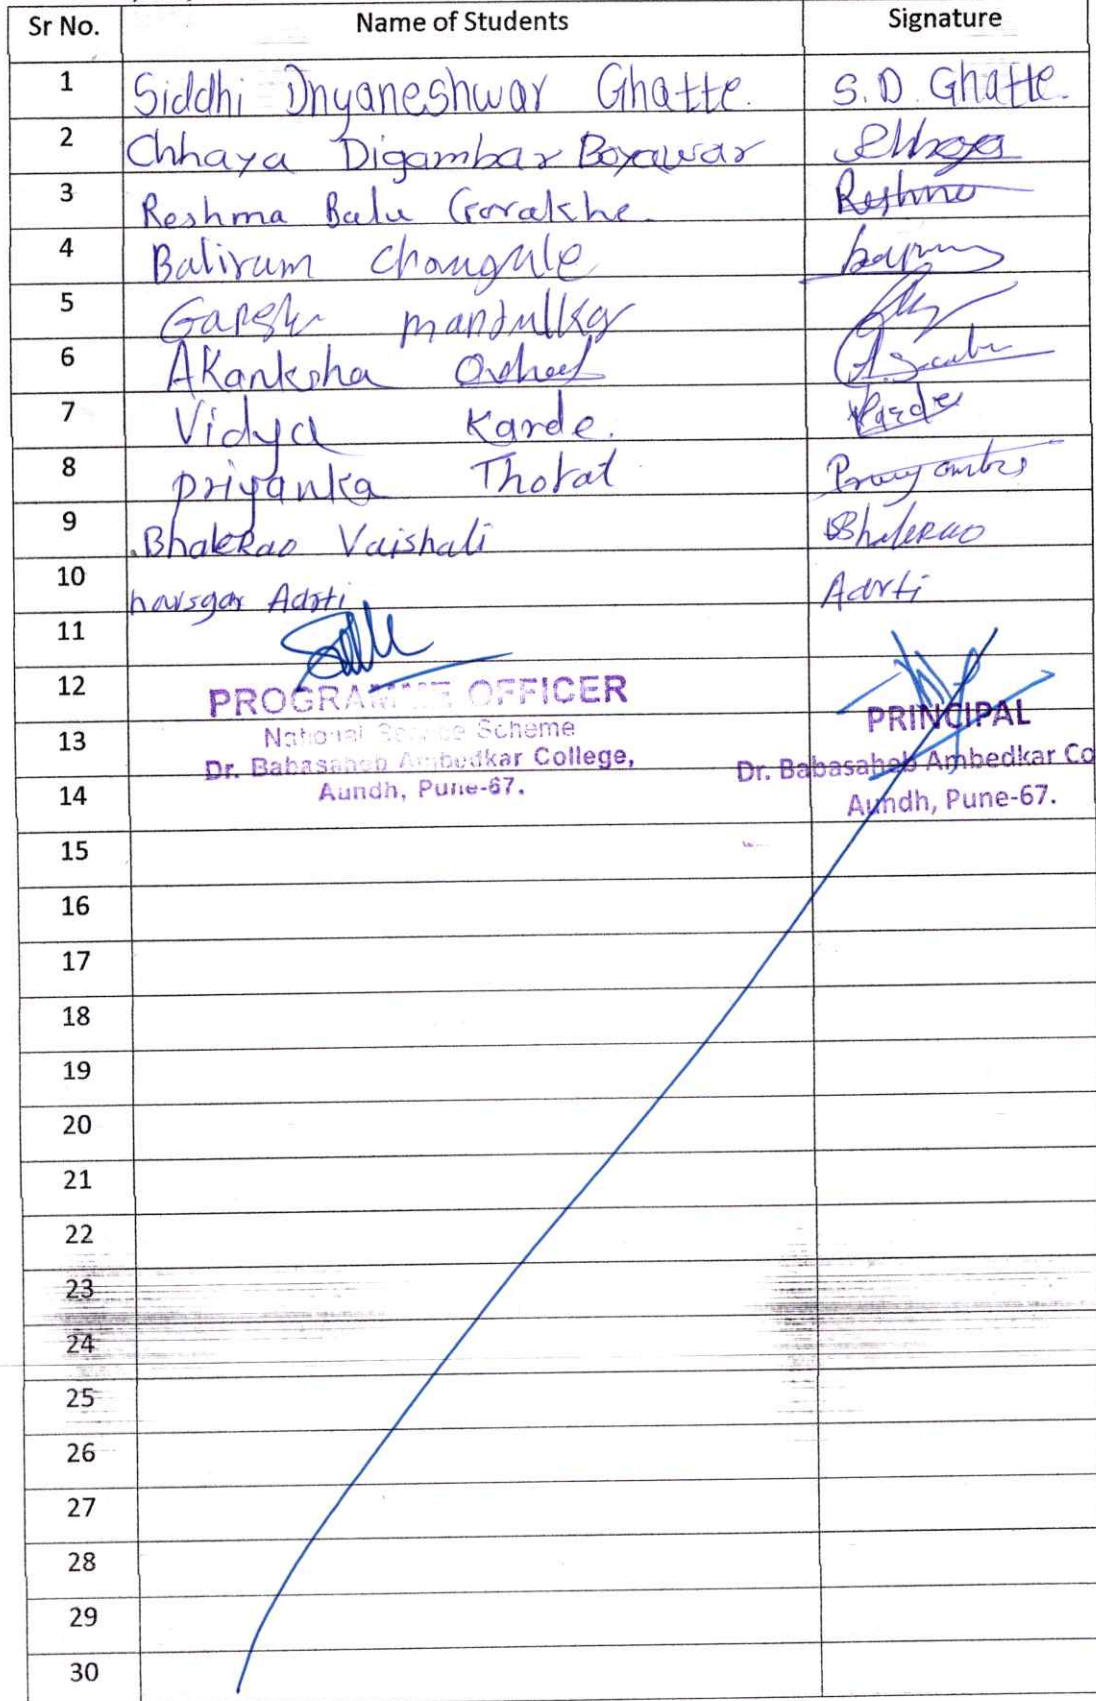 Sr No. Name of Students Signature
1 Siddhi Dnyaneshwar Ghatte. S.D. Ghatte.
2 Chhaya Digambar Boyawar
3 Reshma Balu Gorakhe. Reshma
4 Baliram Changule
5 Ganesh mandulkar
6 Akanksha
7 Vidya Karde. Karde
8 priyanka Thorat
9 Bhalerao Vaishali Bhalerao
10 Aarti Aarti
11
12 PROGRAMME OFFICER PRINCIPAL
13 National Service Scheme
Dr. Babasaheb Ambedkar College, Dr. Babasaheb Ambedkar Co
14 Aundh, Pune-67. Aundh, Pune-67.
15
16
17
18
19
20
21
22
23
24
25
26
27
28
29
30